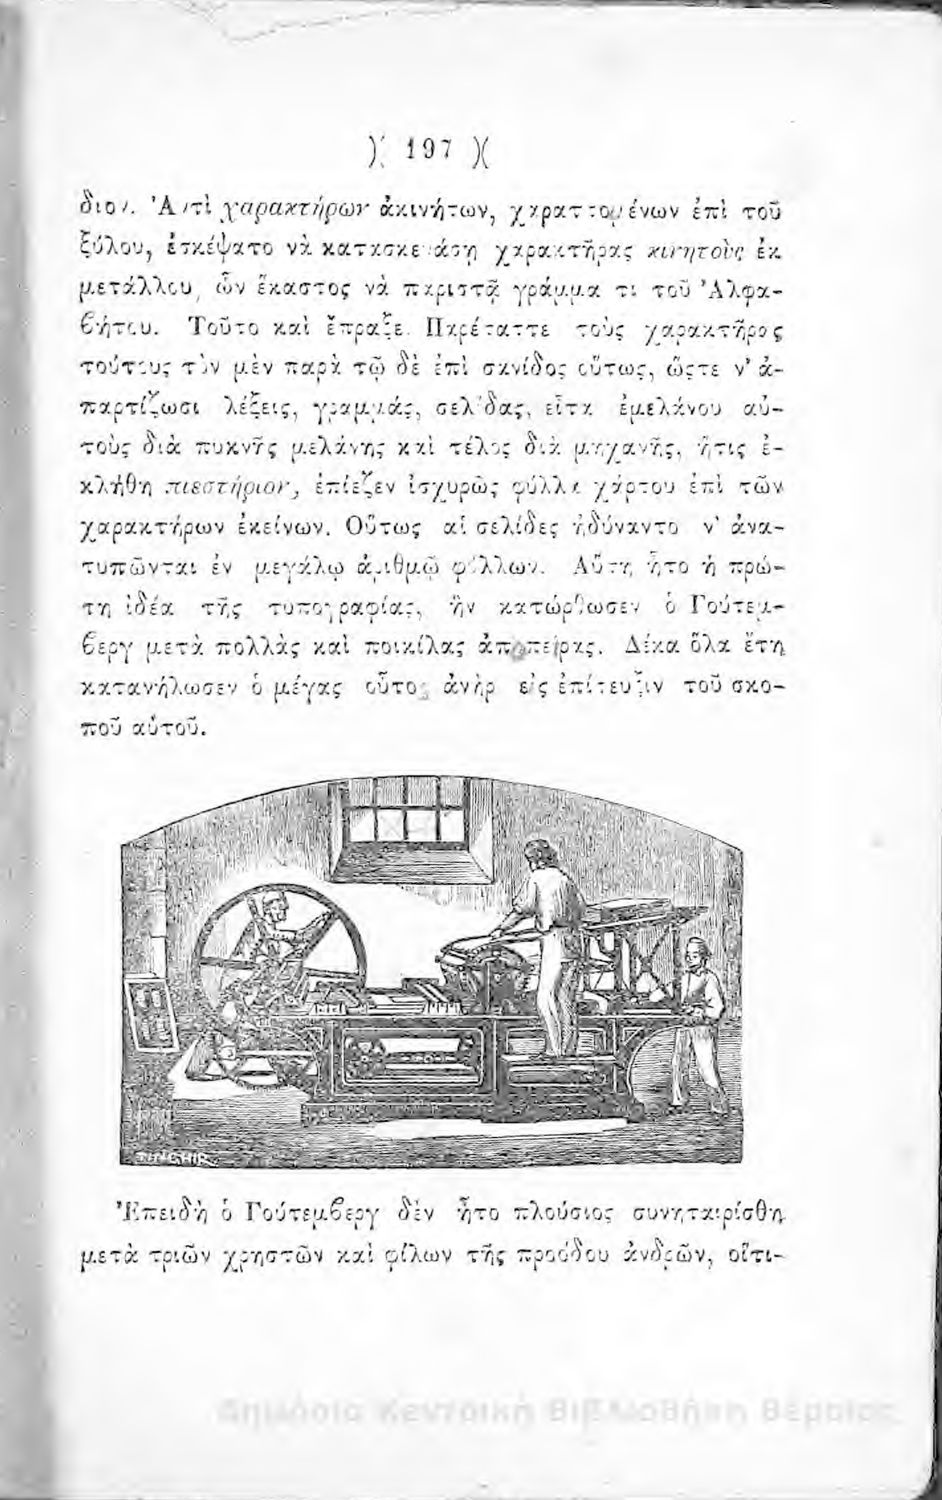 )( 197 )(
διον. Ἀντὶ χαρακτήρων ἀκινήτων, χαραττομένων ἐπὶ τοῦ
ξύλου, ἐσκέψατο νὰ κατασκευάσῃ χαρακτῆρας κινητοὺς ἐκ
μετάλλου, ὧν ἕκαστος νὰ παριστᾷ γράμμα τι τοῦ Ἀλφα-
βήτου. Τοῦτο καὶ ἔπραξε. Παρέταττε τοὺς χαρακτῆρας
τούτους τὸν μὲν παρὰ τῷ δὲ ἐπὶ σανίδος οὕτως, ὥςτε ν' ἀ-
παρτίζωσι λέξεις, γραμμάς, σελίδας, εἶτα ἐμελάνου αὐ-
τοὺς διὰ πυκνῆς μελάνης καὶ τέλος διὰ μηχανῆς, ἥτις ἐ-
κλήθη πιεστήριον, ἐπίεζεν ἰσχυρῶς φύλλα χάρτου ἐπὶ τῶν
χαρακτήρων ἐκείνων. Οὕτως αἱ σελίδες ἠδύναντο ν' ἀνα-
τυπῶνται ἐν μεγάλῳ ἀριθμῷ φύλλων. Αὕτη ἦτο ἡ πρώ-
τη ἰδέα τῆς τυπογραφίας, ἣν κατώρθωσεν ὁ Γούτεμ-
βεργ μετὰ πολλὰς καὶ ποικίλας ἀποπείρας. Δέκα ὅλα ἔτη
κατανήλωσεν ὁ μέγας οὗτος ἀνὴρ εἰς ἐπίτευξιν τοῦ σκο-
ποῦ αὑτοῦ.
TINGHIR
Ἐπειδὴ ὁ Γούτεμβεργ δὲν ἦτο πλούσιος συνηταιρίσθη
μετὰ τριῶν χρηστῶν καὶ φίλων τῆς προόδου ἀνδρῶν, οἵτι-
Δημόσια Κεντρική Βιβλιοθήκη Βέροιας